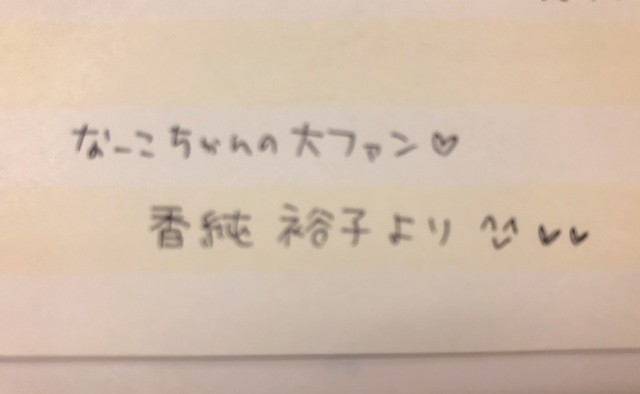 なーこちゃんの大ファン♡
香純 裕子より ^^ ♥♥